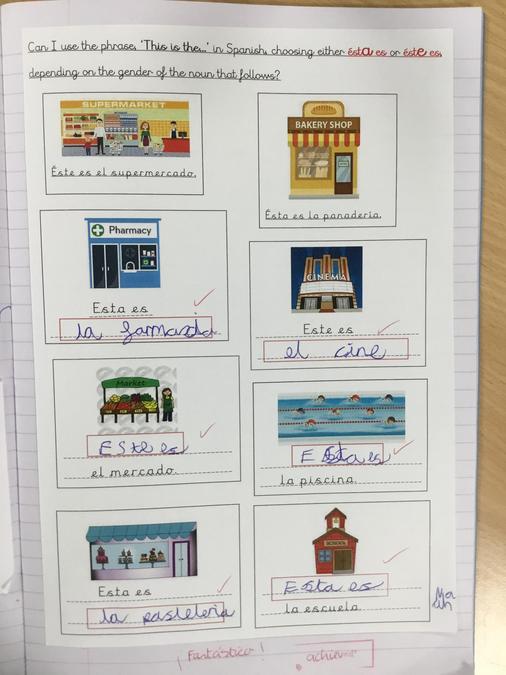 Can I use the phrase, 'This is the...' in Spanish, choosing either ésta es or éste es,
depending on the gender of the noun that follows?
SUPERMARKET
Éste es el supermercado.
BAKERY SHOP
Ésta es la panadería.
Pharmacy
Esta es
la farmacia
CINEMA
Este es
el cine
Market
Este es
el mercado.
Esta es
la piscina.
Esta es
la pastelería
SCHOOL
Esta es
la escuela.
¡Fantástico!